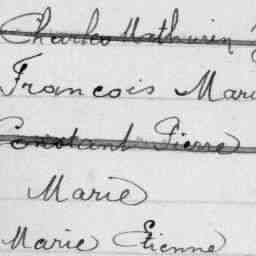 Charles Mathurin
Francois Mari
Constant Pierre
Marie
Marie Etienne